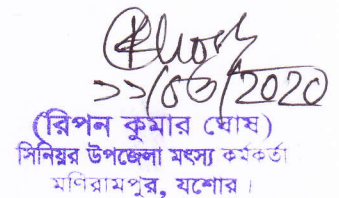 ১১/০৩/2020
(রিপন কুমার ঘোষ)
সিনিয়র উপজেলা মৎস্য কর্মকর্তা
মণিরামপুর, যশোর।